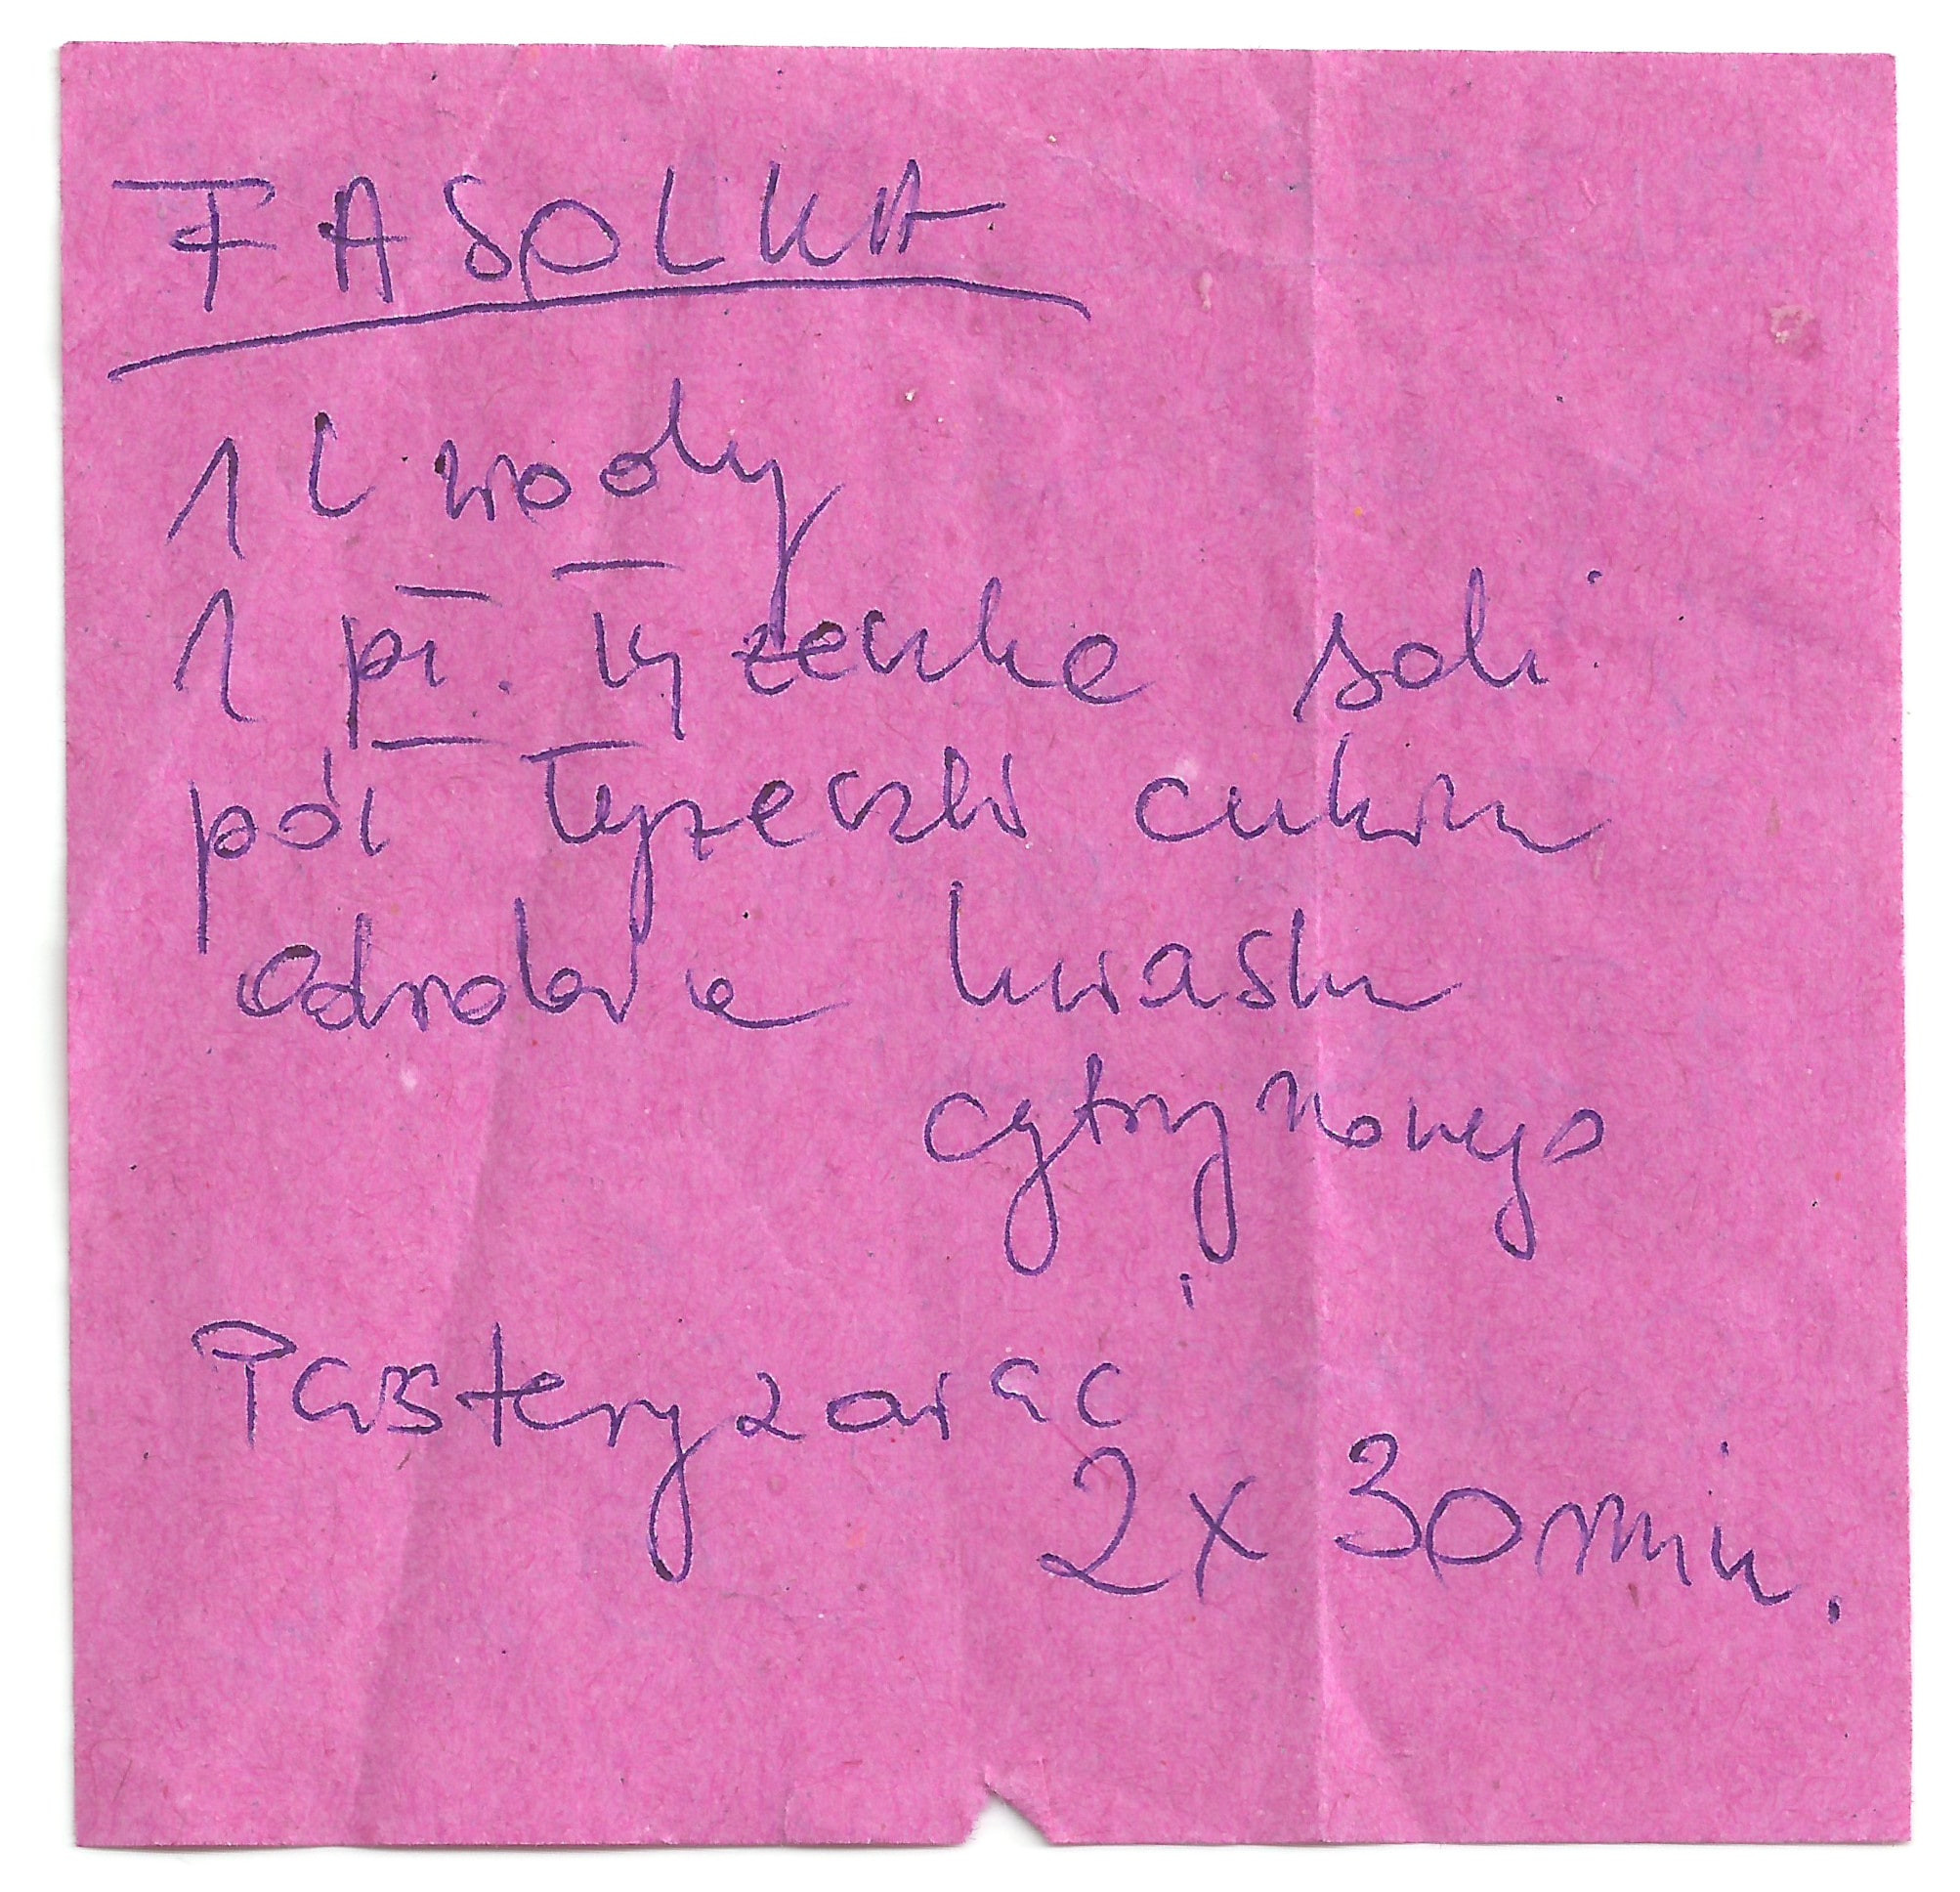 FASOLKA
1 l wody
1 pł. łyżeczka soli
pół łyżeczki cukru
odrobina kwasku
cytrynowego
Pasteryzować
2 x 30 min.